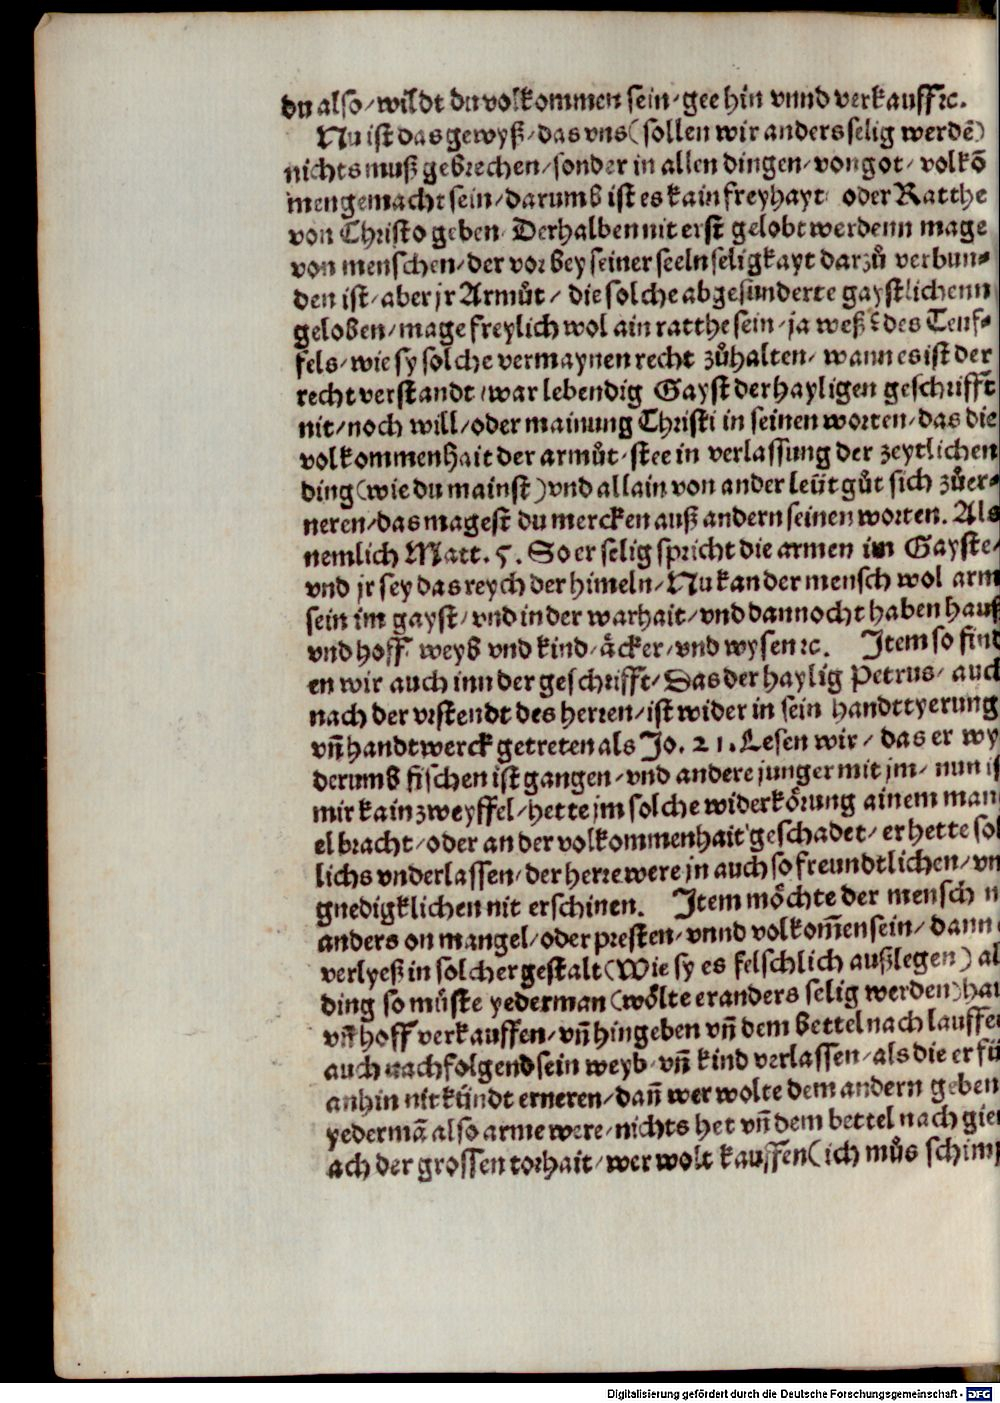 du also/wildt du volkommen sein/gee hin vnnd verkauff ⁊c.
Nu ist das gewyß/das vns(sollen wir anders selig werdē)
nichts muß gebrechen/sonder in allen dingen/von got/volkō
men gemacht sein/darumb ist es kain freyhayt oder Ratthe
von Christo geben/Derhalben nit erst gelobt werdenn mage
von menschen/der vor bey seiner seeln seligkayt darzů verbun⸗
den ist/aber jr Armůt/die solche abgesunderte gaystlichenn
geloben/mage freylich wol ain ratthe sein/ja weß des Teuf⸗
fels/wie sy solche vermaynen recht zůhalten/wann es ist der
recht verstandt/war lebendig Gayst der hayligen geschrifft
nit/noch will/oder mainung Christi in seinen worten/das die
volkommenhait der armůt/stee in verlassung der zeytlichen
ding(wie du mainst)vnd allain von ander leüt gůt sich zůer⸗
neren/das magest du mercken auß andern seinen worten. Als
nemlich Matt. 5. So er selig spricht die armen im Gayste/
vnd jr sey das reych der himeln/Nu kan der mensch wol arm
sein im gayst/vnd in der warhait/vnd dannocht haben hauß
vnd hoff/weyb vnd kind/äcker/vnd wysen ⁊c. Item so find
en wir auch inn der geschrifft/Das der haylig Petrus/auch
nach der vrstendt des herren/ist wider in sein handttyerung
vñ handtwerck getreten als Jo. 21. Lesen wir/das er wy
derumb fischen ist gangen/vnd andere junger mit jm/nun is
mir kain zweyffel/hette jm solche widerkörung ainem man
el bracht/oder an der volkommenhait geschadet/er hette sol
lichs vnderlassen/der herre were jn auch so freundtlichen/vn
gnedigklichen nit erschinen. Item möchte der mensch n
anders on mangel/oder presten/vnnd volkom̄en sein/dann
verlyeß in solcher gestalt(Wie sy es felschlich außlegen)al
ding so müste yederman(wölte er anders selig werden)hau
vñ hoff verkauffen/vñ hingeben vñ dem bettel nach lauffen
auch nachfolgend sein weyb/vñ kind verlassen/als die er fü
anhin nit kündt erneren/dañ wer wolte dem andern geben
yedermā also arme were/nichts het vñ dem bettel nach gien
ach der grossen torhait/wer wolt kauffen(ich můs schimp
Digitalisierung gefördert durch die Deutsche Forschungsgemeinschaft - DFG